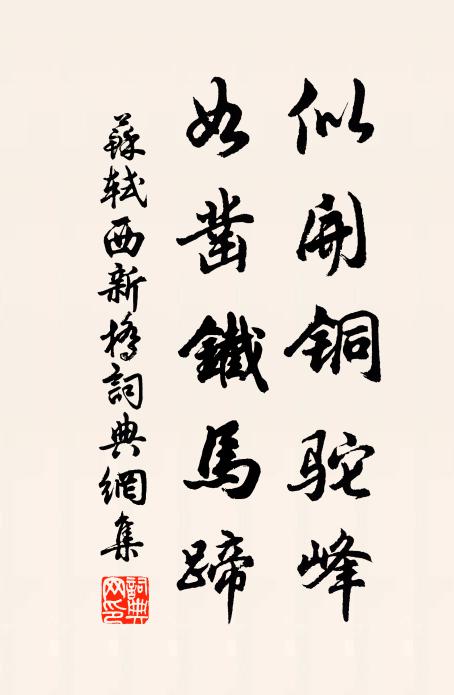 似開铜駝峰
如凿鐵馬蹄
蘇軾西新橋詞典網集
詞典网印